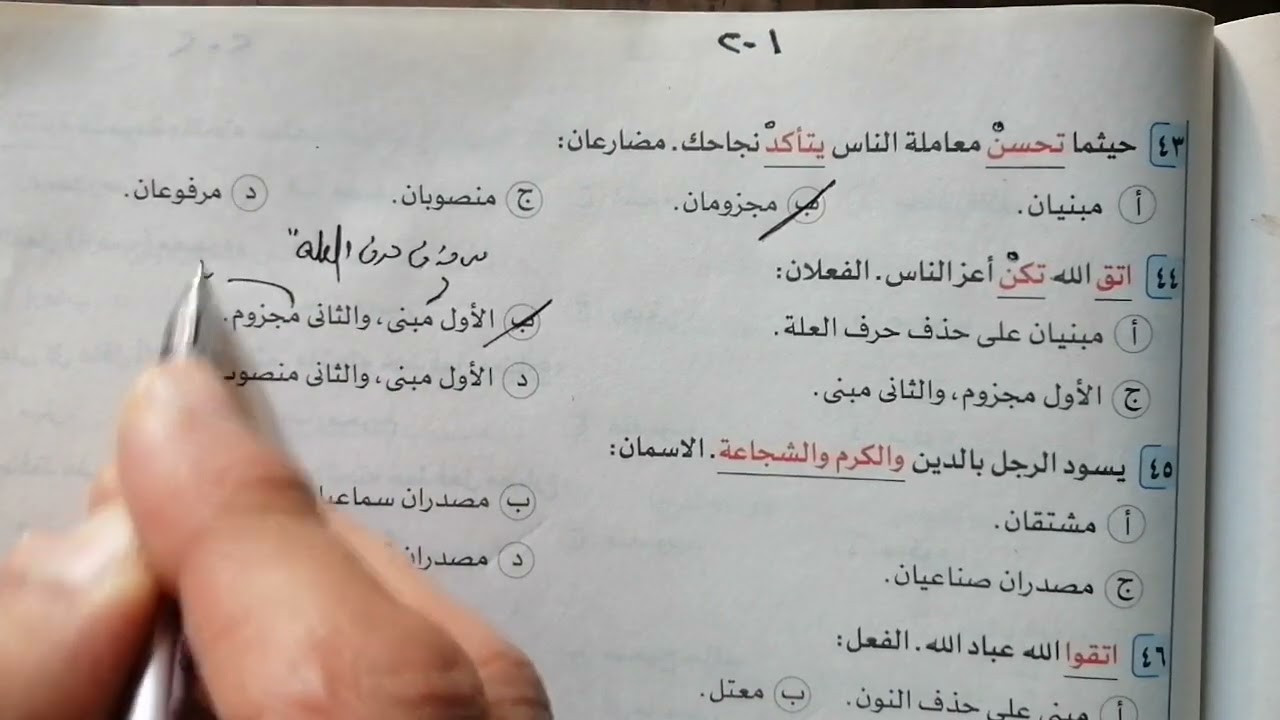 ٢٠١
٤٣ حيثما تحسنْ معاملة الناس يتأكدْ نجاحك. مضارعان:
أ مبنيان. ب مجزومان. ج منصوبان. د مرفوعان.
حرف العلة"
٤٤ اتق الله تكنْ أعز الناس. الفعلان:
أ مبنيان على حذف حرف العلة. ب الأول مبنى، والثانى مجزوم.
ج الأول مجزوم، والثانى مبنى. د الأول مبنى، والثانى
٤٥ يسود الرجل بالدين والكرم والشجاعة. الاسمان:
أ مشتقان. ب مصدران
ج مصدران صناعيان. د مصدران
٤٦ اتقوا الله عباد الله. الفعل:
أ مبنى على حذف النون. ب معتل.